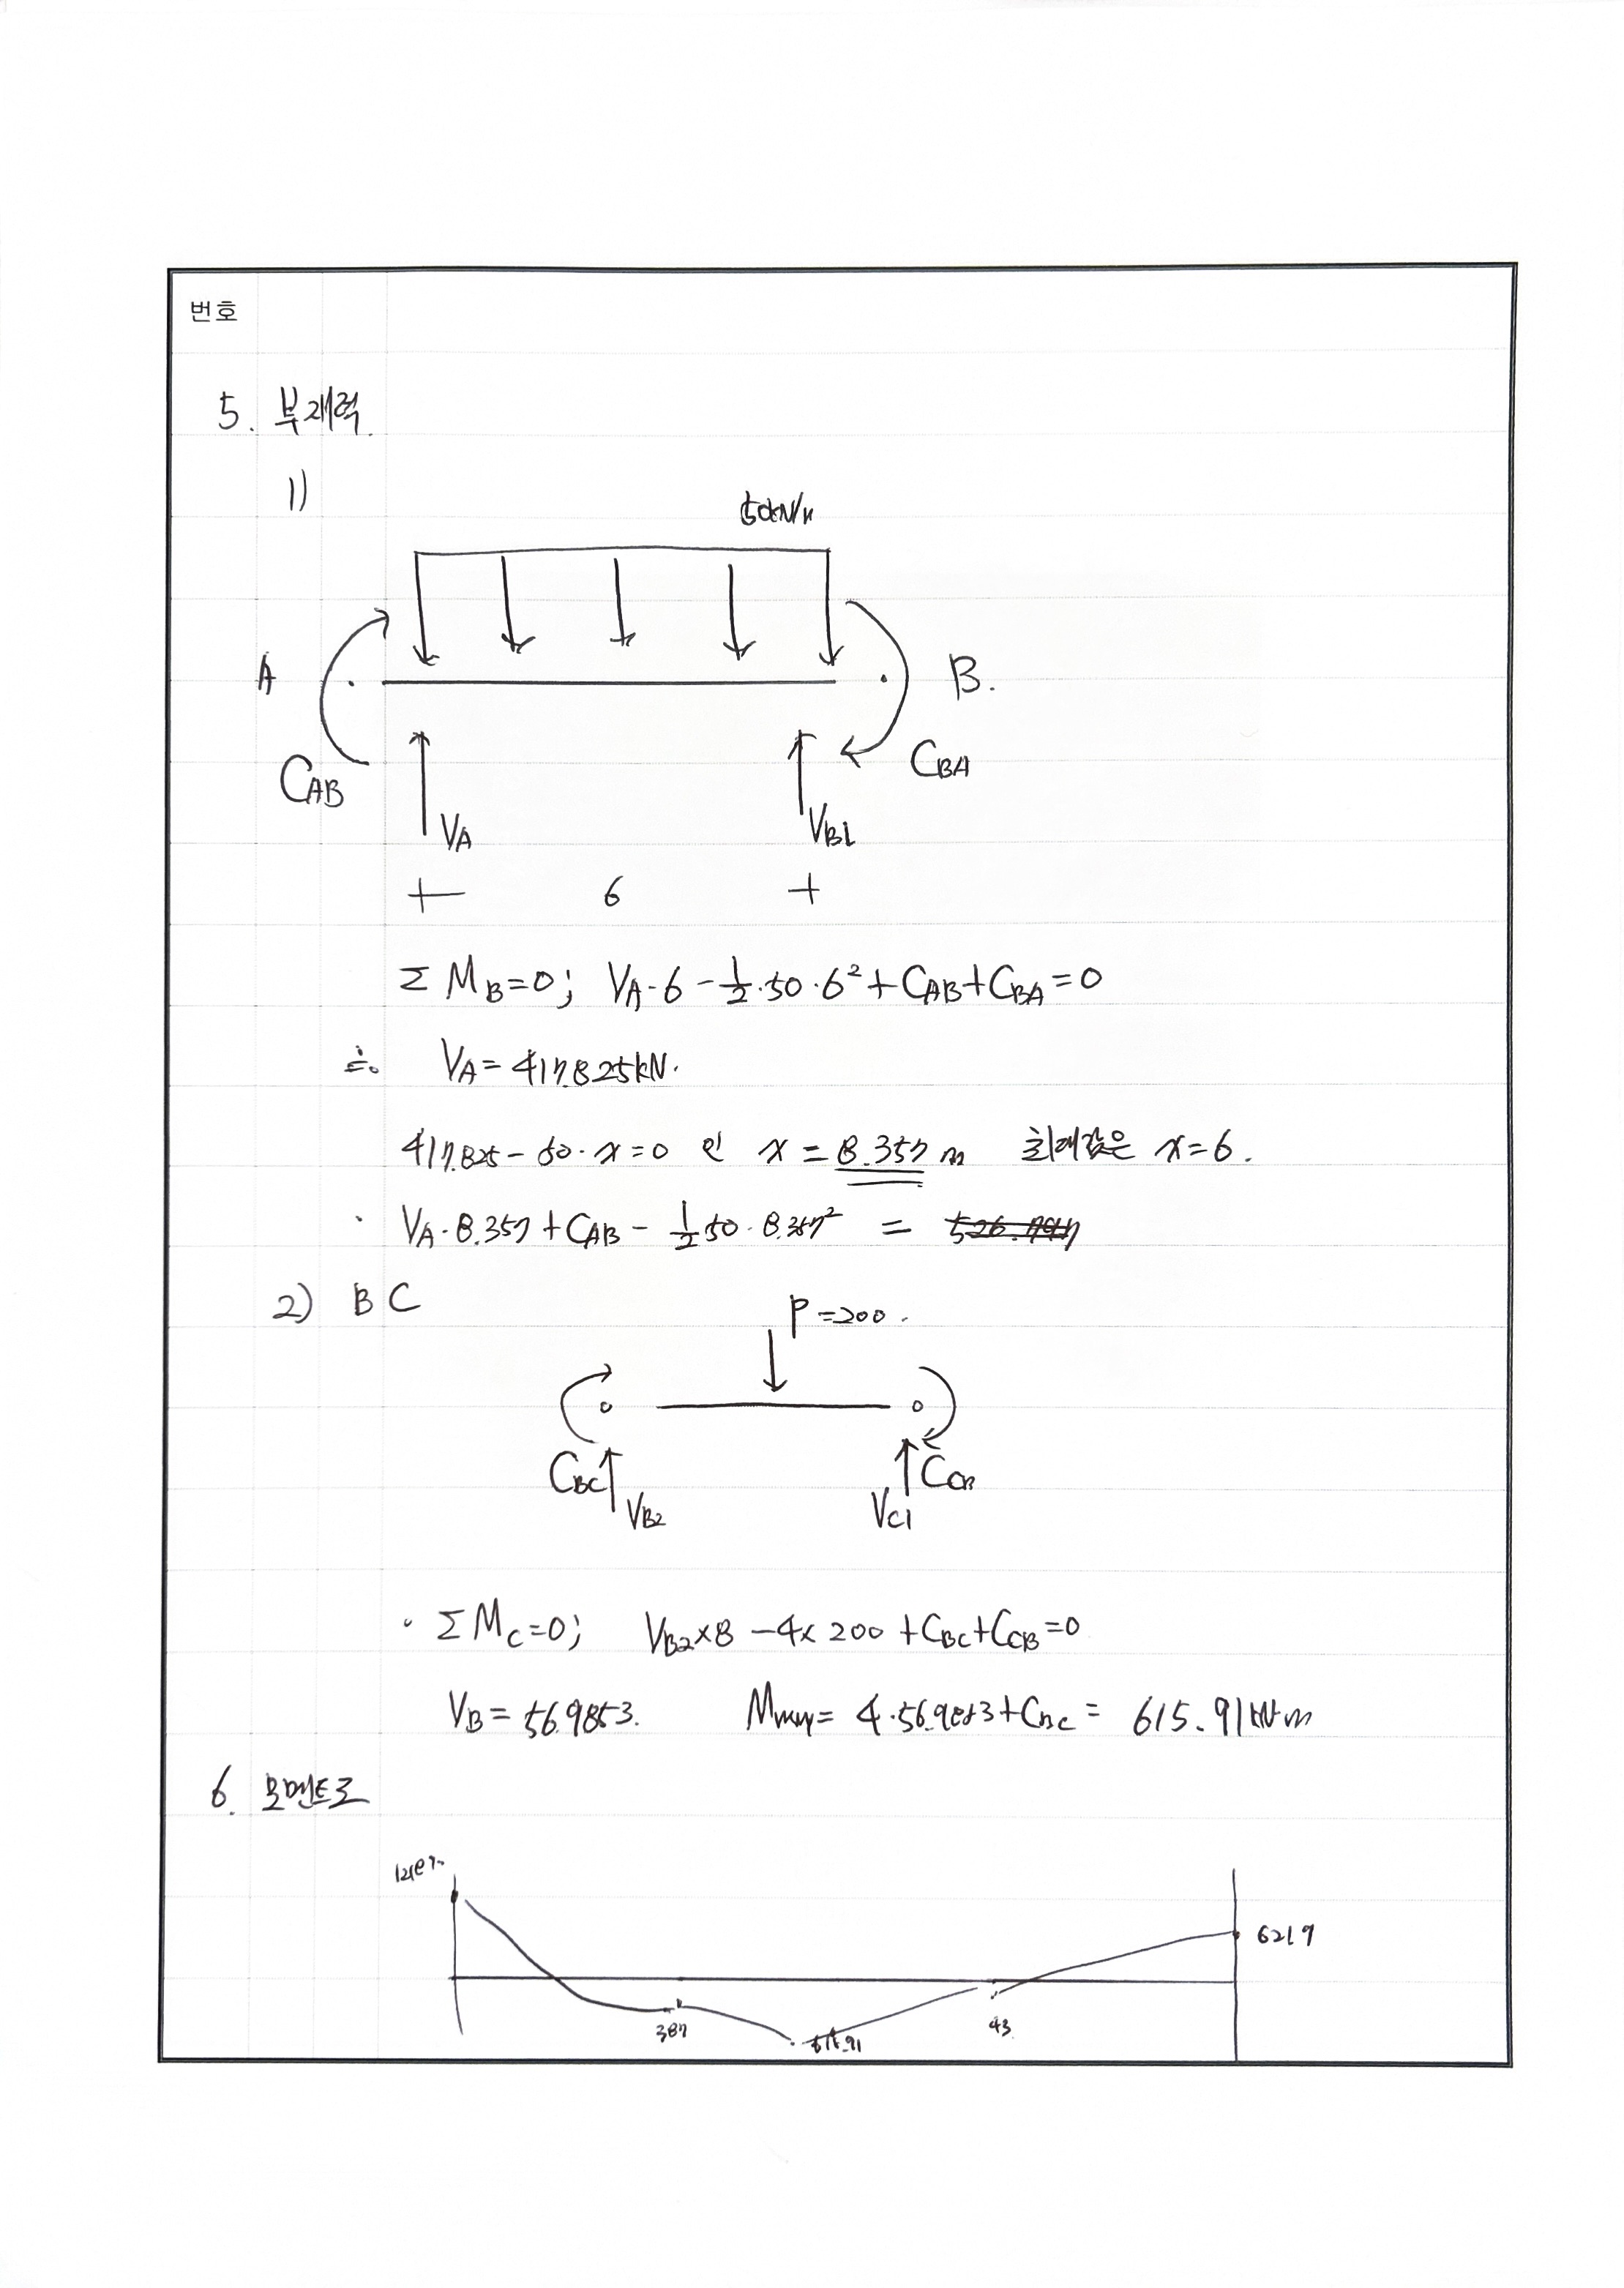 번호
5. 부재력
1)
50kN/m
A
B.
C_AB
C_BA
V_A
V_B1
6
Σ M_B=0; V_A·6 - 1/2·50·6² + C_AB + C_BA = 0
∴ V_A = 417.825kN.
417.825 - 50·x = 0 인 x = 8.357 m 최대값은 x=6.
· V_A·8.357 + C_AB - 1/2 50·8.357² =
2) BC
P=200.
C_BC
V_B2
V_C1
C_CB
· Σ M_C=0; V_B2×8 - 4×200 + C_BC + C_CB = 0
V_B = 56.9853. M_max = 4·56.9853 + C_BC = 615.91kN·m
6. 모멘트도
621.9
387
615.91
43